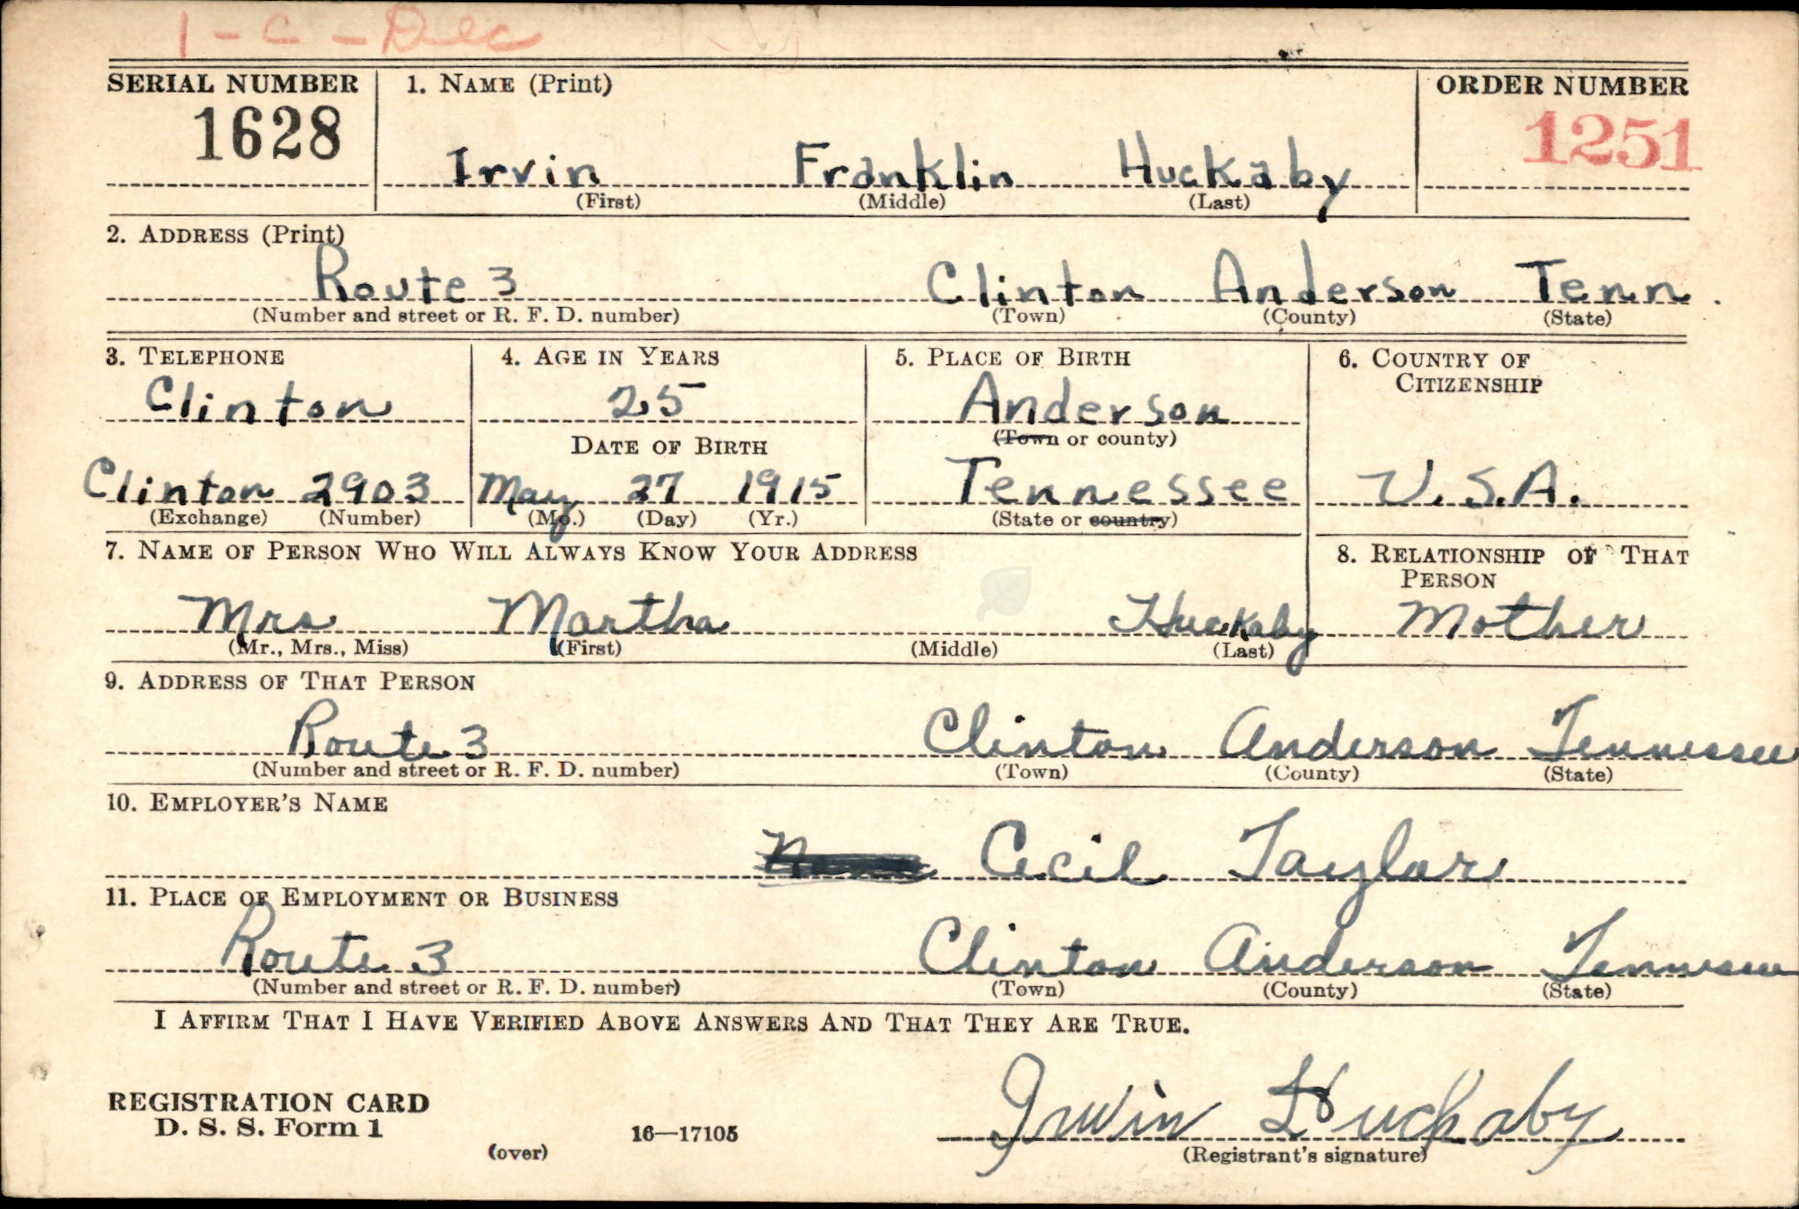 1-C-Dec
SERIAL NUMBER 1. NAME (Print) ORDER NUMBER
1628 Irvin Franklin Huckaby 1251
(First) (Middle) (Last)
2. ADDRESS (Print)
Route 3 Clinton Anderson Tenn.
(Number and street or R. F. D. number) (Town) (County) (State)
3. TELEPHONE 4. AGE IN YEARS 5. PLACE OF BIRTH 6. COUNTRY OF
CITIZENSHIP
Clinton 25 Anderson
DATE OF BIRTH (Town or county)
Clinton 2903 May 27 1915 Tennessee U.S.A.
(Exchange) (Number) (Mo.) (Day) (Yr.) (State or country)
7. NAME OF PERSON WHO WILL ALWAYS KNOW YOUR ADDRESS 8. RELATIONSHIP OF THAT
PERSON
Mrs Martha Huckaby Mother
(Mr., Mrs., Miss) (First) (Middle) (Last)
9. ADDRESS OF THAT PERSON
Route 3 Clinton Anderson Tennessee
(Number and street or R. F. D. number) (Town) (County) (State)
10. EMPLOYER'S NAME
Cecil Taylor
11. PLACE OF EMPLOYMENT OR BUSINESS
Route 3 Clinton Anderson Tennessee
(Number and street or R. F. D. number) (Town) (County) (State)
I AFFIRM THAT I HAVE VERIFIED ABOVE ANSWERS AND THAT THEY ARE TRUE.
REGISTRATION CARD
D. S. S. Form 1 Irvin Huckaby
(over) 16—17105 (Registrant's signature)